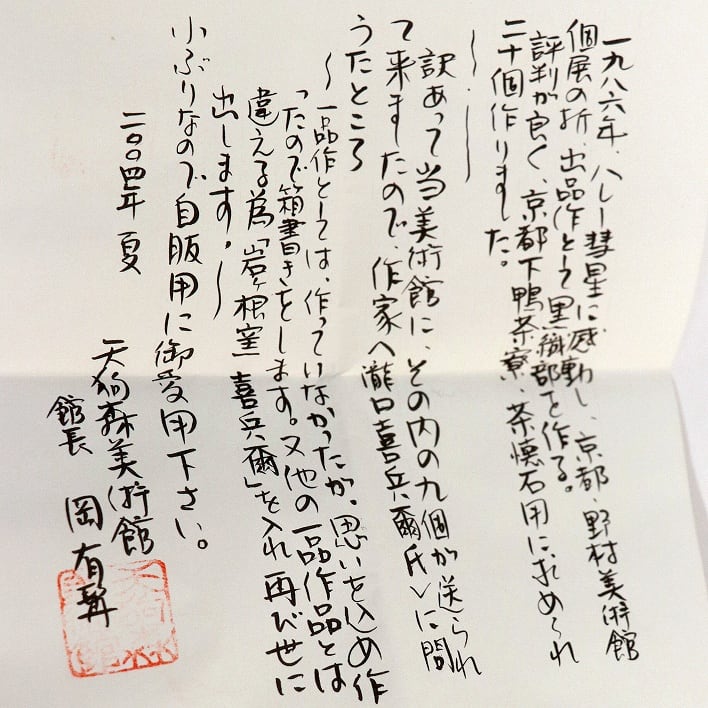 一九八六年、ハレー彗星に感動し、京都・野村美術館
個展の折、出品作として黒織部を作る。
評判が良く、京都下鴨茶寮、茶懐石用に求められ
二十個作りました。
〜・〜
訳あって当美術館に、その内の九個が送られ
て来ましたので、作家へ瀧口喜兵爾氏〉に問
うたところ
〜一品作としては、作っていなかったが、思いを込め作
ったので箱書きをします。又他の一品作品とは
違える為「岩ヶ根窯」喜兵爾」を入れ再び世に
出します。〜
小ぶりなので自服用に御愛用下さい。
二〇〇四年 夏
天狗森美術館
館長 岡 有